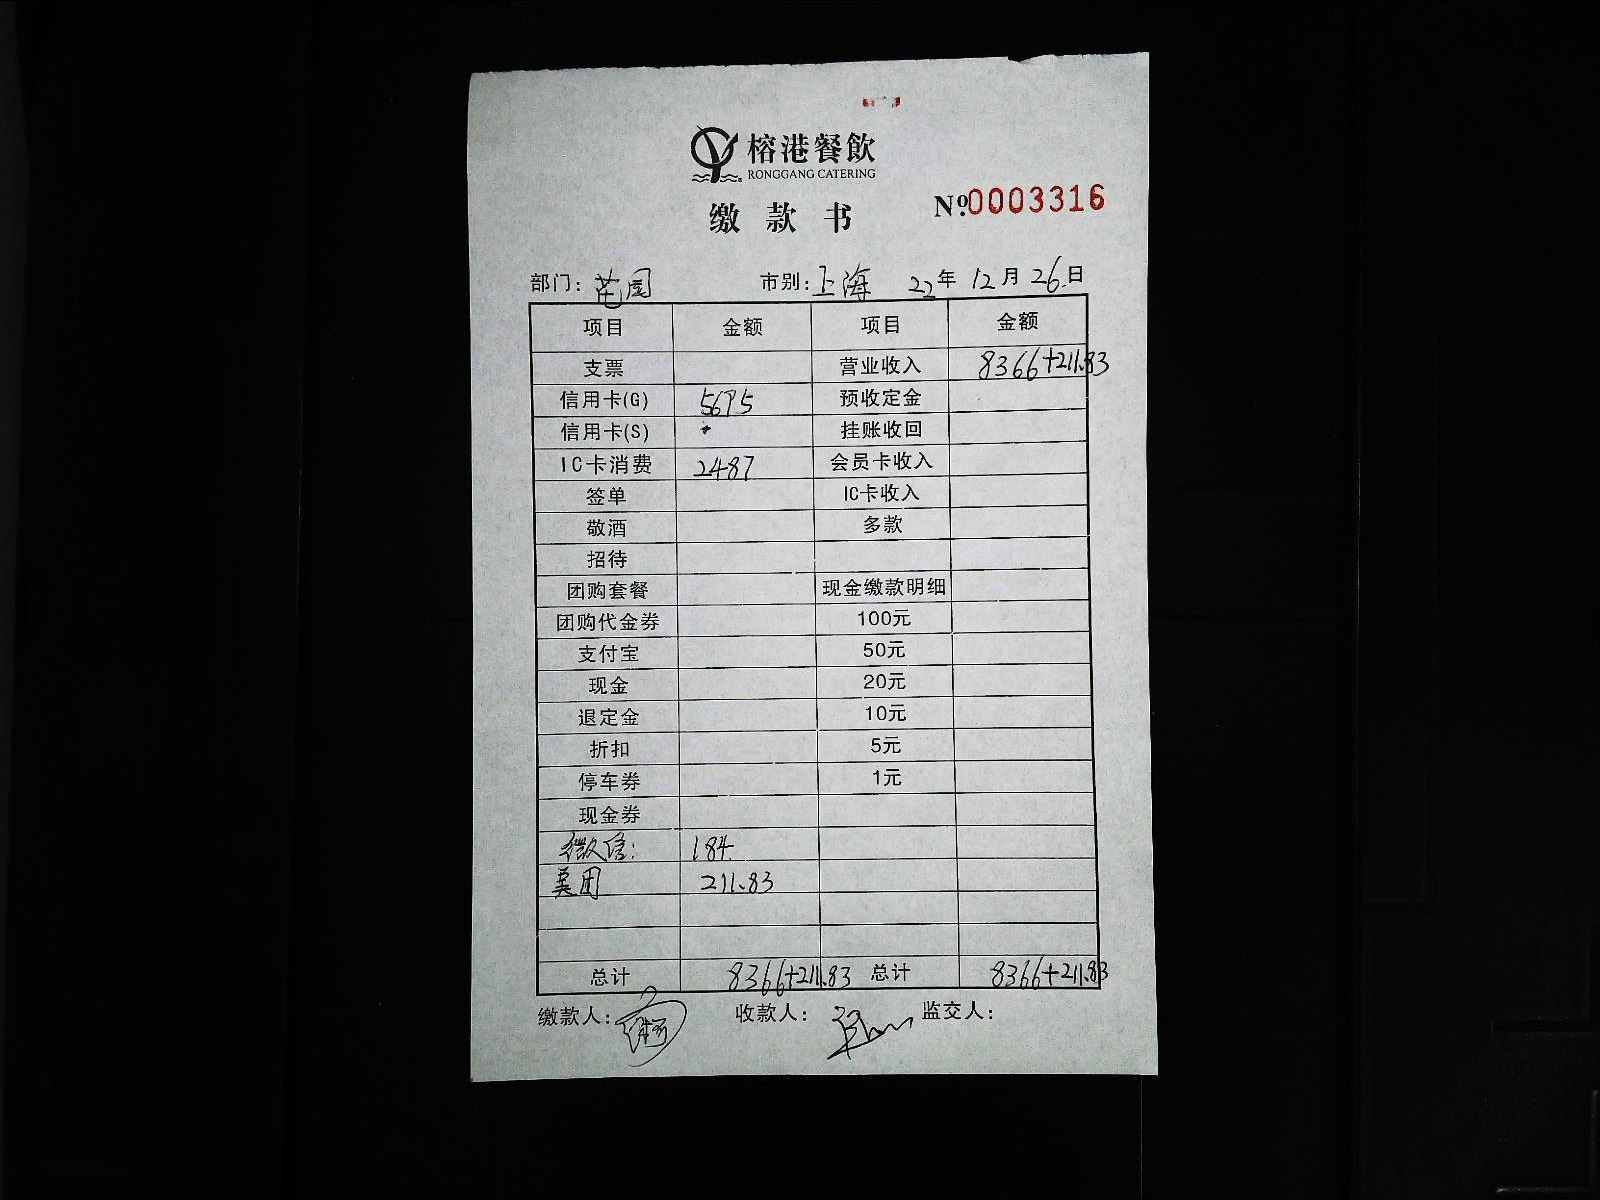 榕港餐飲
RONGGANG CATERING
缴款书
Nº.0003316
部门: 花园 市别: 上海 22年 12月 26日
项目 金额 项目 金额
支票 营业收入 8366+211.83
信用卡(G) 5695 预收定金
信用卡(S) 挂账收回
IC卡消费 2487 会员卡收入
签单 IC卡收入
敬酒 多款
招待
团购套餐 现金缴款明细
团购代金券 100元
支付宝 50元
现金 20元
退定金 10元
折扣 5元
停车券 1元
现金券
微信: 184
美团 211.83
总计 8366+211.83 总计 8366+211.83
缴款人: 收款人: 监交人: